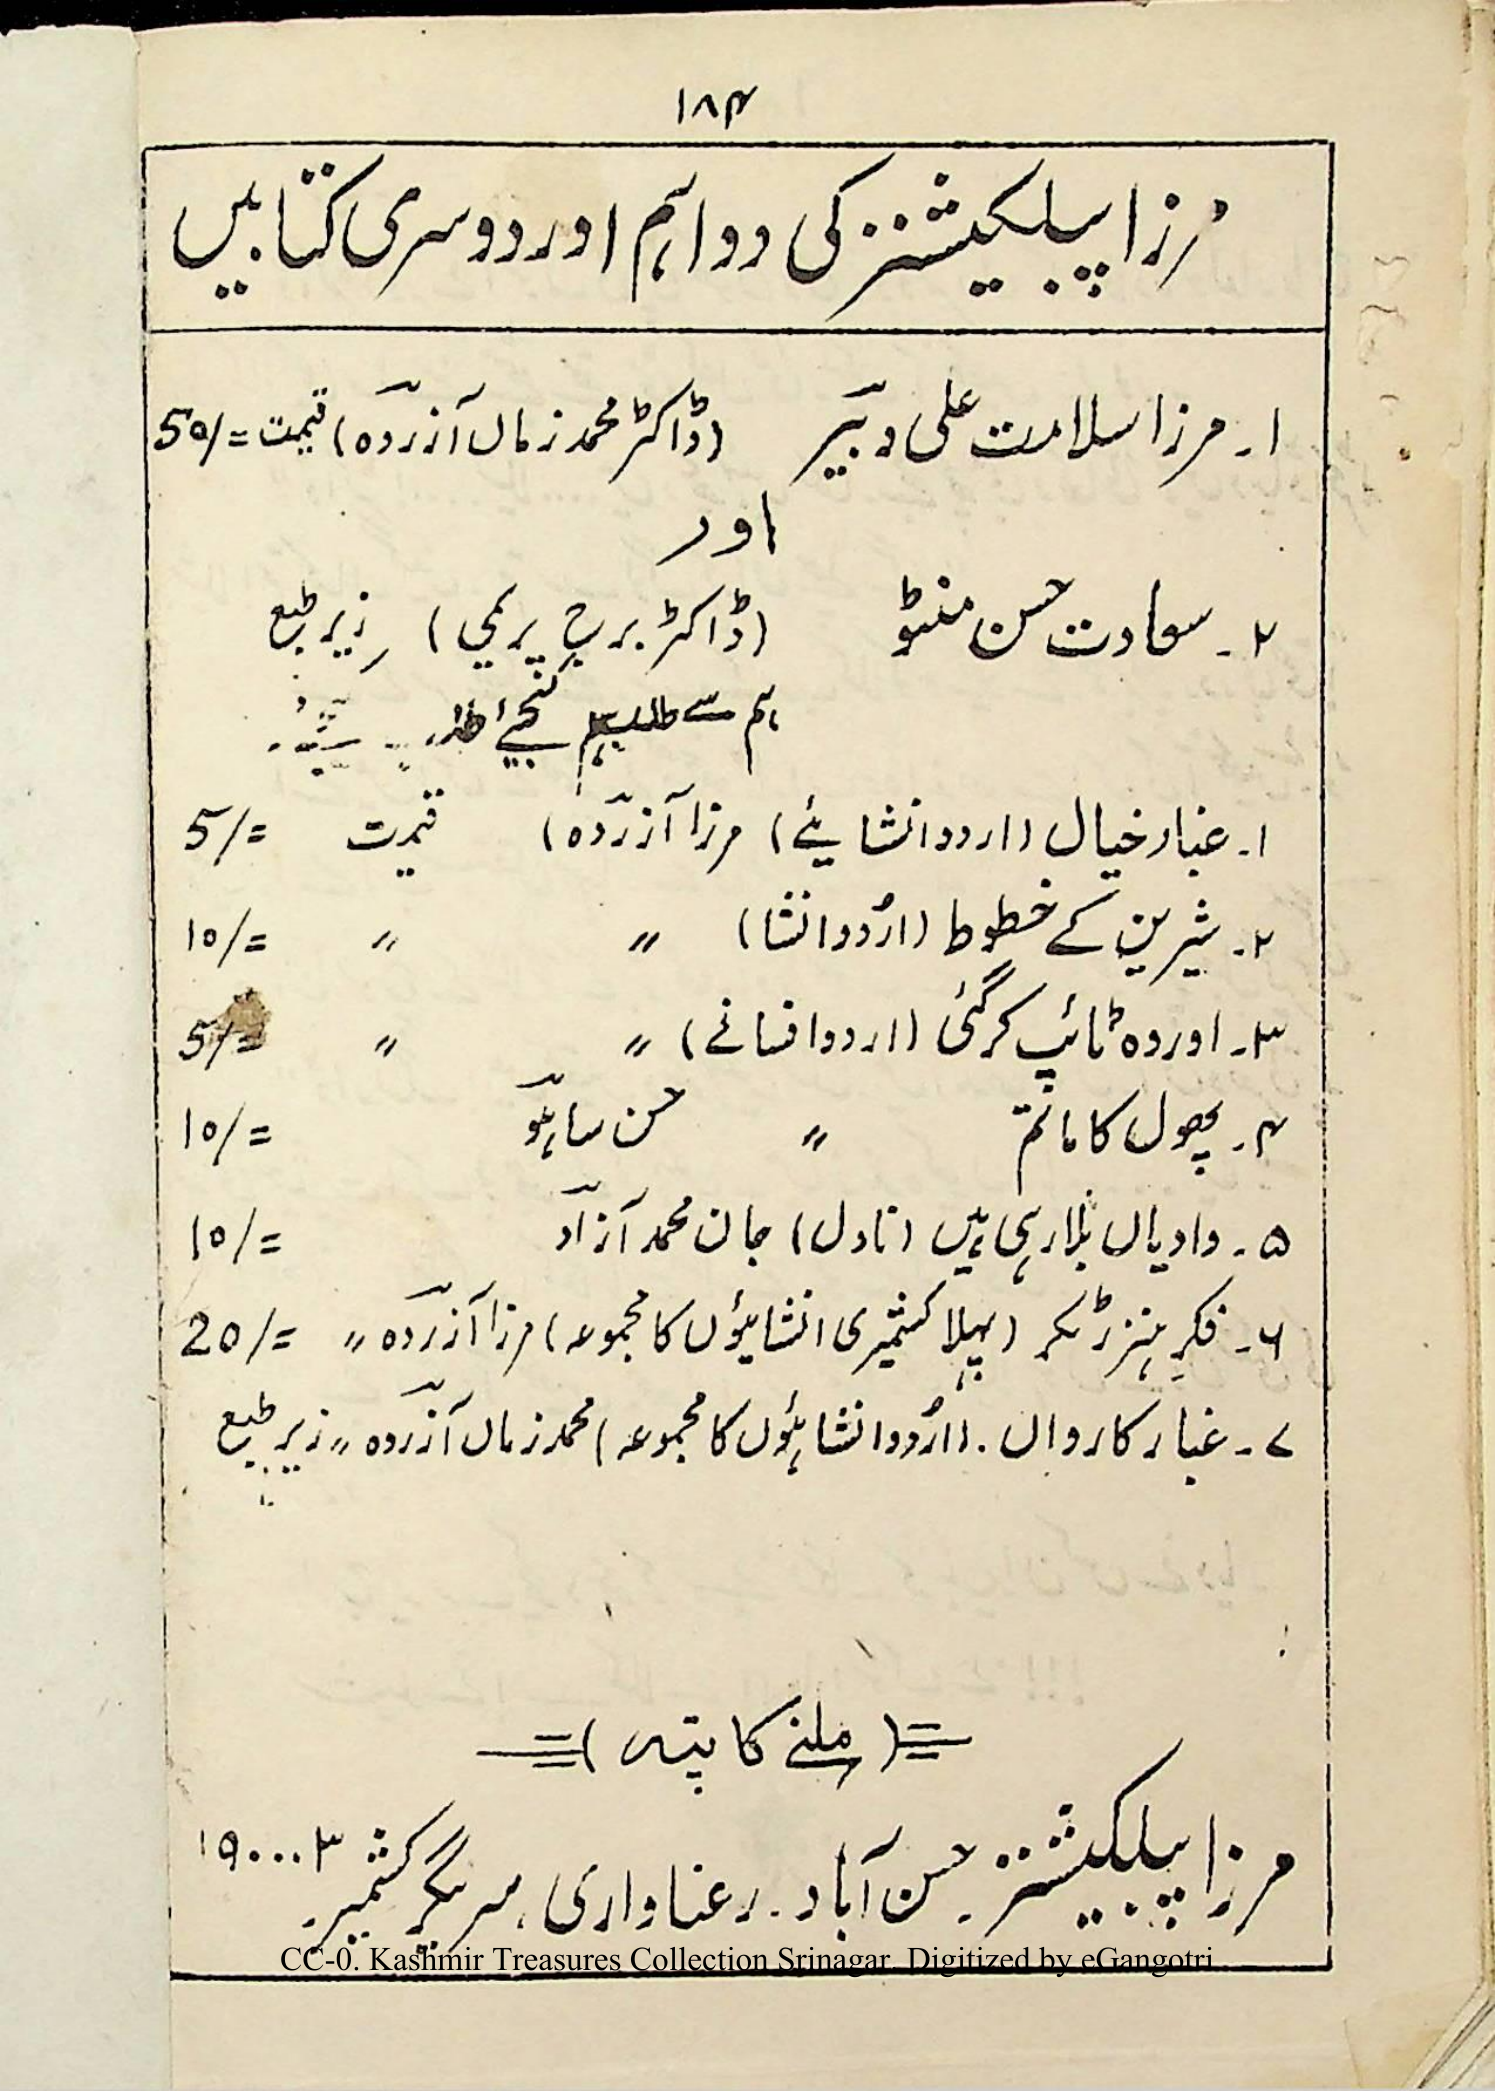 ۱۸۴
مرزا پبلیکیشنز کی دو اہم اور دوسری کتابیں
۱۔ مرزا سلامت علی دبیؔر (ڈاکٹر محمد زماں آزردؔہ) قیمت =/50
اور
۲۔ سعادت حسن منٹو (ڈاکٹر برج پریمی) زیر طبع
ہم سے طلب کیجئے
۱۔ غبار خیال (اردو انشائیے) مرزا آزردؔہ) قیمت =/5
۲۔ شیرین کے خطوط (اُردو انشا) 〃 〃 =/10
۳۔ اور وہ ٹائپ کر گئی (اردو افسانے) 〃 〃 =/5
۴۔ پھول کا ماتم 〃 حسن ساہوؔ =/10
۵۔ وادیاں بُلا رہی ہیں (ناول) جان محمد آزادؔ =/10
۶۔ فکرِ ہنز ژکر (پہلا کشمیری انشائیوں کا مجموعہ) مرزا آزردؔہ 〃 =/20
۷۔ غبار کارواں۔ (اُردو انشائیوں کا مجموعہ) محمد زماں آزردؔہ 〃 زیر طبع
=(ملنے کا پتہ)=
مرزا پبلیکیشنز۔ حسن آباد۔ رعناواری، سرینگر کشمیر۔ ۱۹۰۰۰۳
CC-0. Kashmir Treasures Collection Srinagar. Digitized by eGangotri